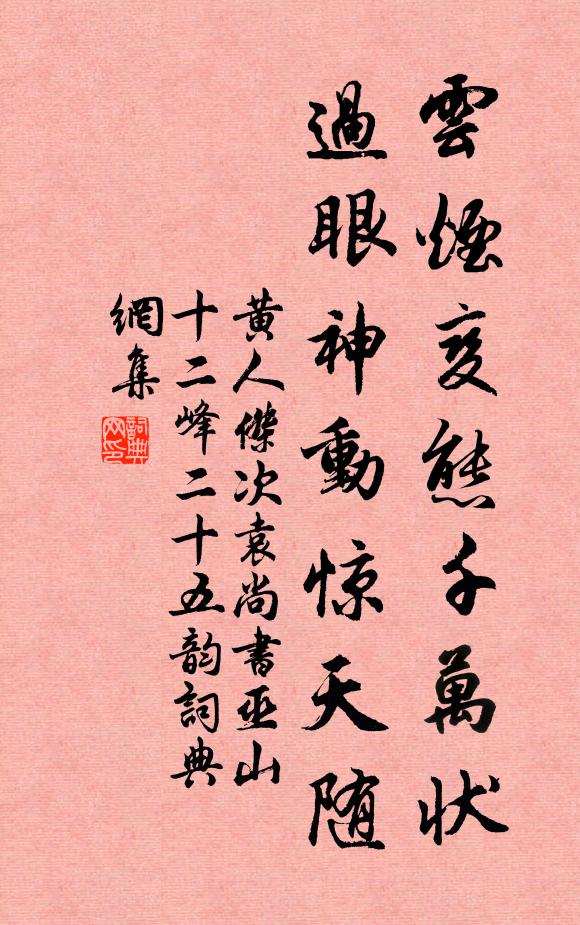 雲煙变態千萬状
過眼神動惊天随
黄人傑次袁尚書巫山
十二峰二十五韵詞典
網集
詞典网印